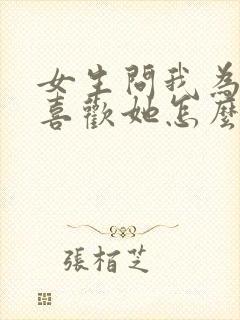 女生問我為
喜歡她怎麼
張栢芝